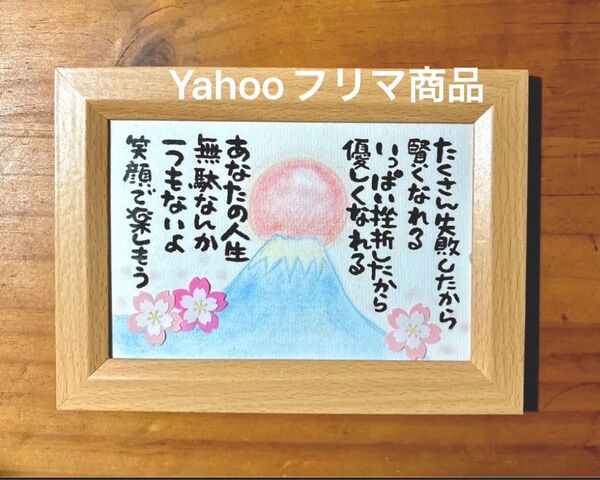 Yahooフリマ商品
たくさん失敗したから
賢くなれる
いっぱい挫折したから
優しくなれる
あなたの人生
無駄なんか
一つもないよ
笑顔で楽しもう